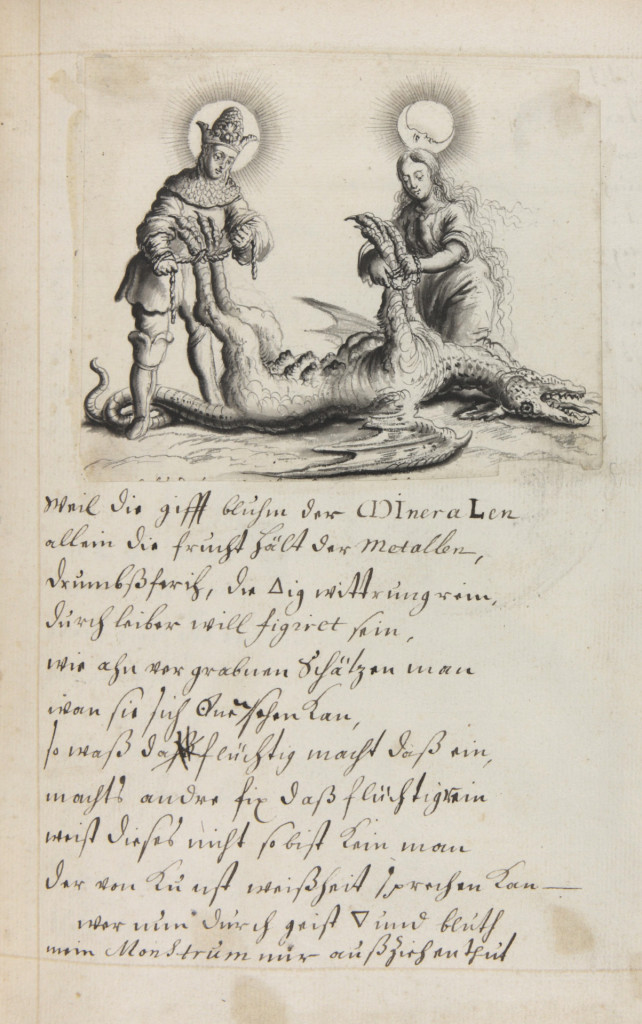 Weil die gifft bluhm der MIneraLen
allein die frucht hält der Metallen,
die △ig wittrung rein,
durch leiber will figiret sein,
wie ahn vergrabnen Schätzen man
wan sie sich sehen kan,
so waß da flüchtig macht daß ein,
machts andre fix daß flüchtig rein
weist dieses nicht so bist kein man
der von Kunst weißheit sprechen kan —
wer nun durch geist ▽ und bluth
mein Monstrum nur außziehen thut